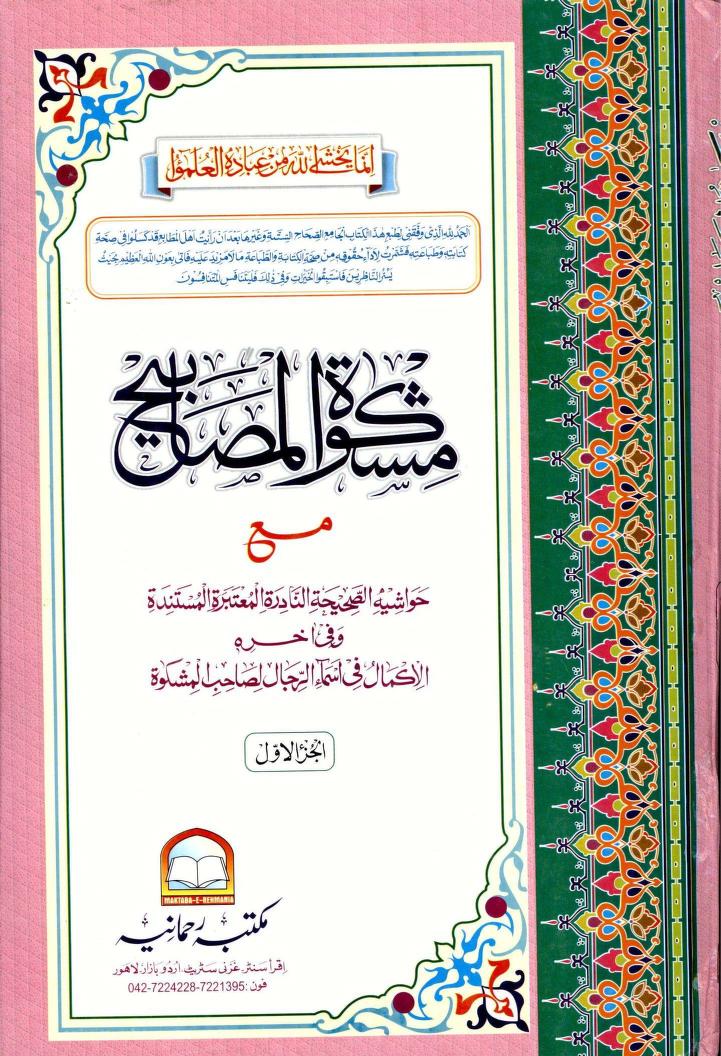 اِنَّمَا يَخْشَى اللهَ مِنْ عِبَادِهِ الْعُلَمٰٓؤُا
الحمد لله الذى وفقنى لطبع هذا الكتاب الجامع الصحاح الستة وغيرها بعد ان رأيت اهل المطابع قد كسلوا فى صحة
كتابته وطباعته فشمرت لاداء حقوقه من صحة الكتابة والطباعة ما لا مزيد عليه فاتى بعون الله العظيم بحيث
يسر الناظرين فاستبقوا الخيرات وفى ذلك فليتنافس المتنافسون
مشكوة المصابيح
مع
حَوَاشِيهِ الصَّحِيحَةِ النَّادِرَةِ الْمُعْتَبَرَةِ الْمُسْتَنِدَةِ
وَفِى اٰخِرِهٖ
الاِكْمَالُ فِى اَسْمَآءِ الرِّجَالِ لِصَاحِبِ الْمِشْكٰوة
الجزء الاوّل
MAKTABA-E-REHMANIA
مکتبہ رحمانیہ
اِقرأ سنٹر غزنی سٹریٹ اُردو بازار لاهور
فون: 042-7224228-7221395